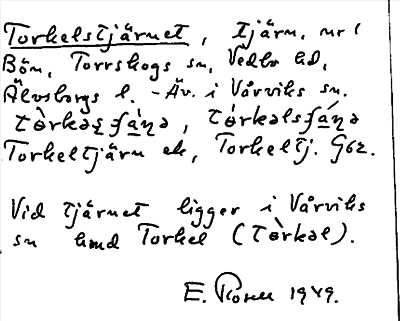 Torkelstjärnet, tjärn, nr 1
Bön, Torrskogs sn, Vedbo hd,
Älvsborgs l. - Äv. i Vårviks sn.
Torkeltjärn ek, Torkeltj. Göz.
Vid tjärnet ligger i Vårviks
sn hmd Torkel (Tòrkəl).
E. Rosell 1949.